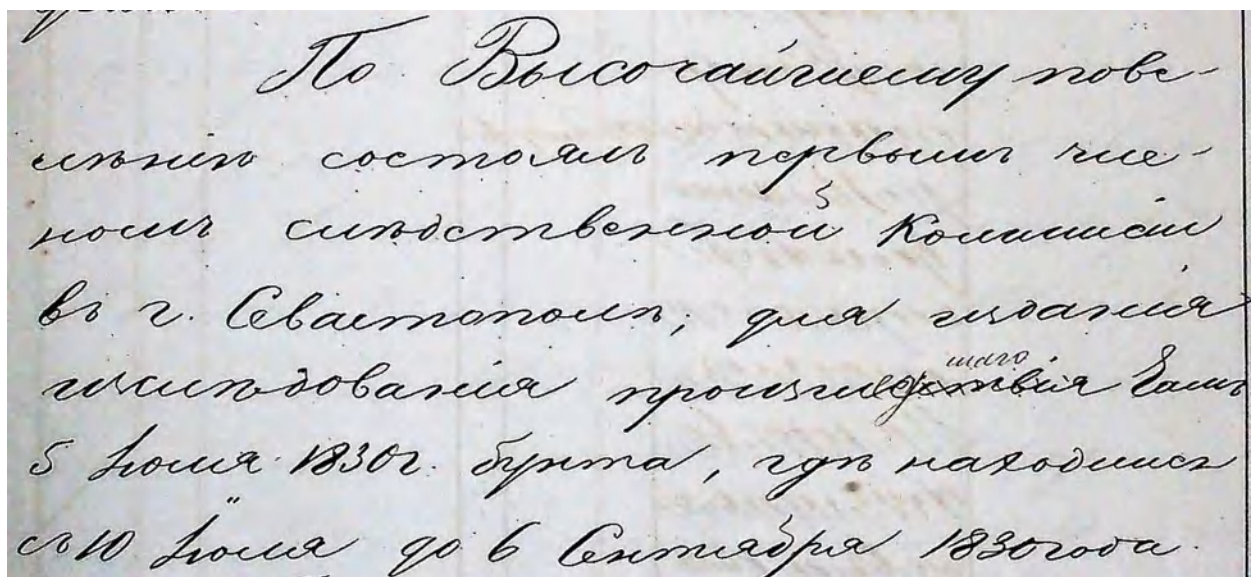 По Высочайшему пове-
лѣнію состоялъ первымъ чле-
номъ слѣдственной Коммисіи
въ г. Севастополѣ, для
изслѣдованія происшедшаго тамъ
5 Іюля 1830 г. бунта, гдѣ находился
съ 10 Іюля до 6 Сентября 1830 года.